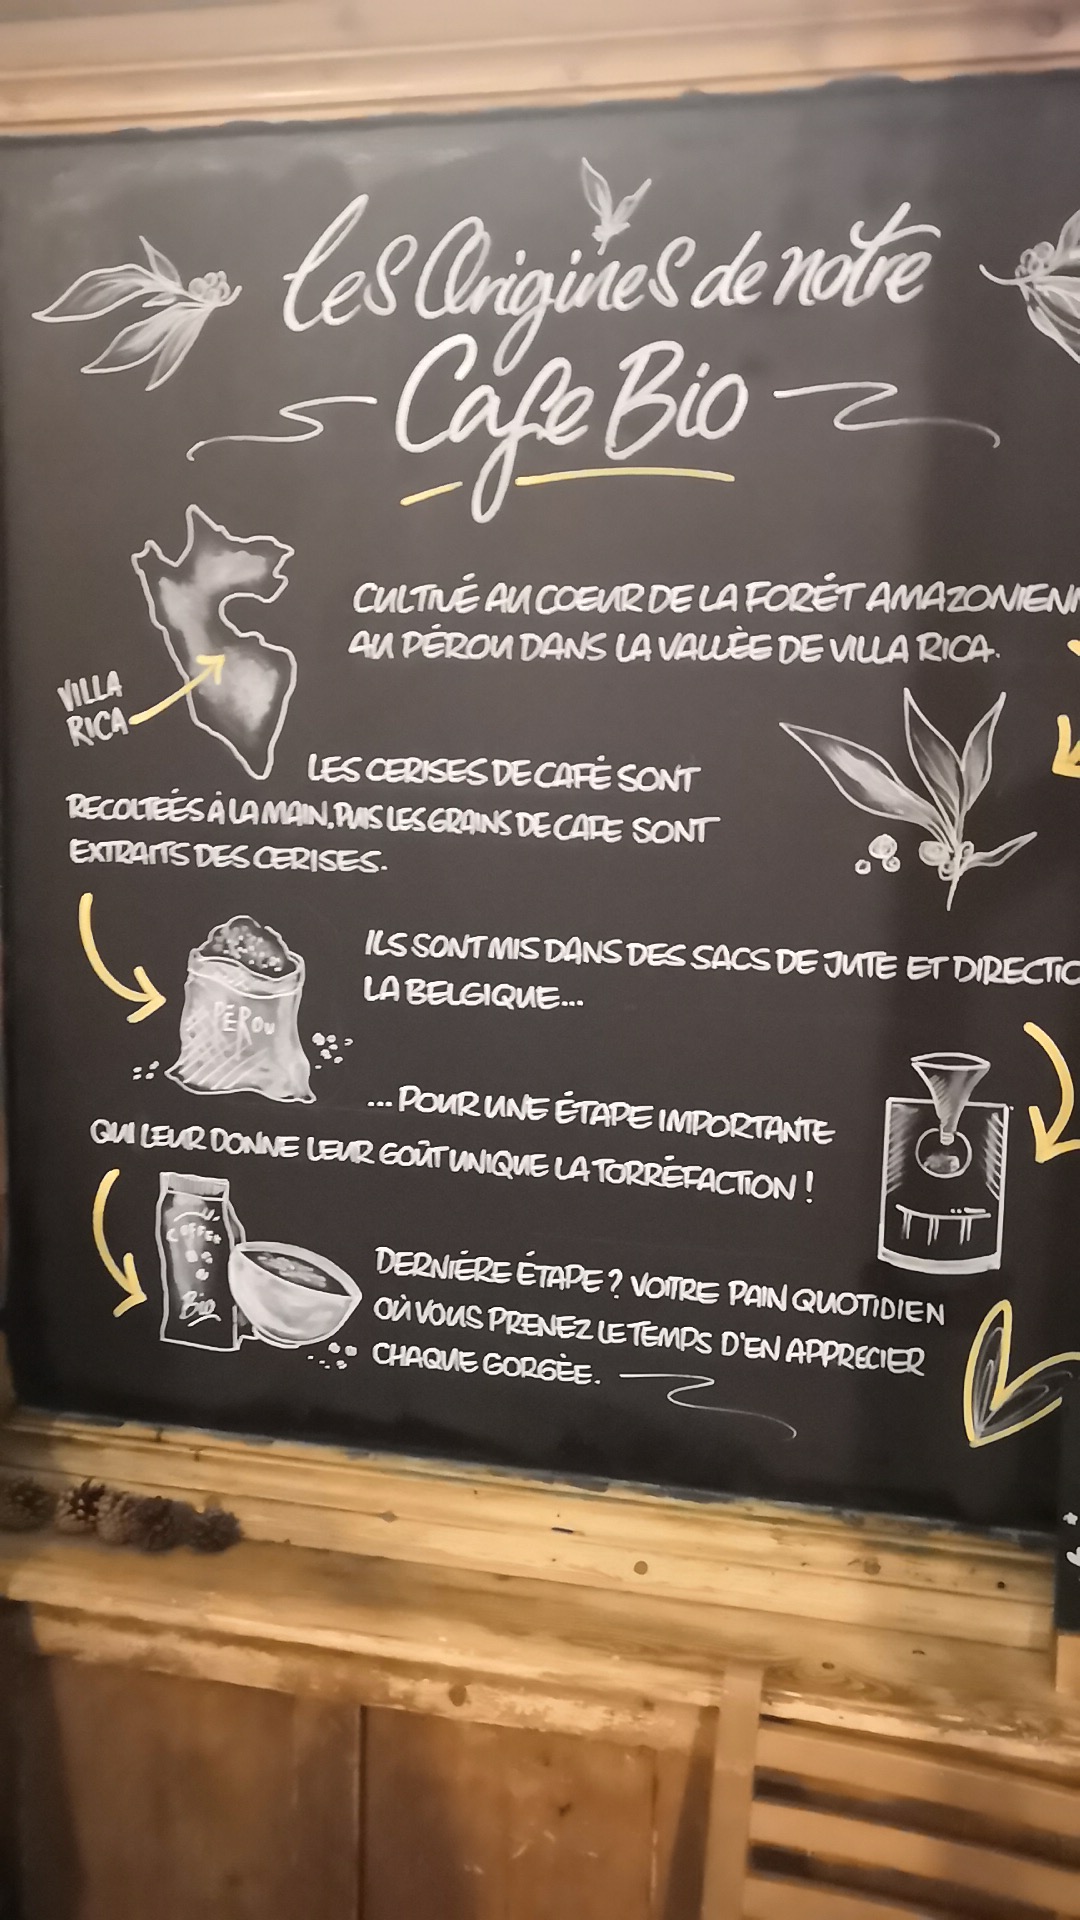 Les Origines de notre
Cafe Bio
CULTIVÉ AU COEUR DE LA FORÉT AMAZONIENN
AU PÉROU DANS LA VALLÈE DE VILLA RICA.
VILLA
RICA
LES CERISES DE CAFÉ SONT
RECOLTEÉS À LA MAIN, PUIS LES GRAINS DE CAFE SONT
EXTRAITS DES CERISES.
ILS SONT MIS DANS DES SACS DE JUTE ET DIRECTIO
LA BELGIQUE...
PÉROU
... POUR UNE ÉTAPE IMPORTANTE
QUI LEUR DONNE LEUR GOÛT UNIQUE LA TORRÉFACTION !
COFFEE
Bio
DERNIÉRE ÉTAPE ? VOITRE PAIN QUOTIDIEN
OÙ VOUS PRENEZ LE TEMPS D'EN APPRECIER
CHAQUE GORGÈE.